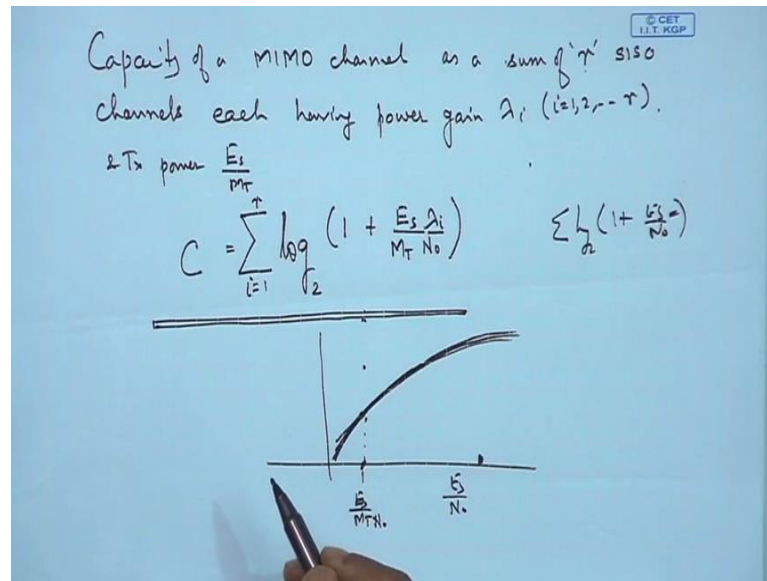 © CET
I.I.T. KGP
Capacity of a MIMO channel as a sum of 'r' SISO
channels each having power gain λi (i=1,2,-- r).
& Tx power Es/MT
C = Σ_{i=1}^{r} log2 (1 + Es/MT λi/No)
Σ log2 (1 + Es/No
Es/MT No
Es/No